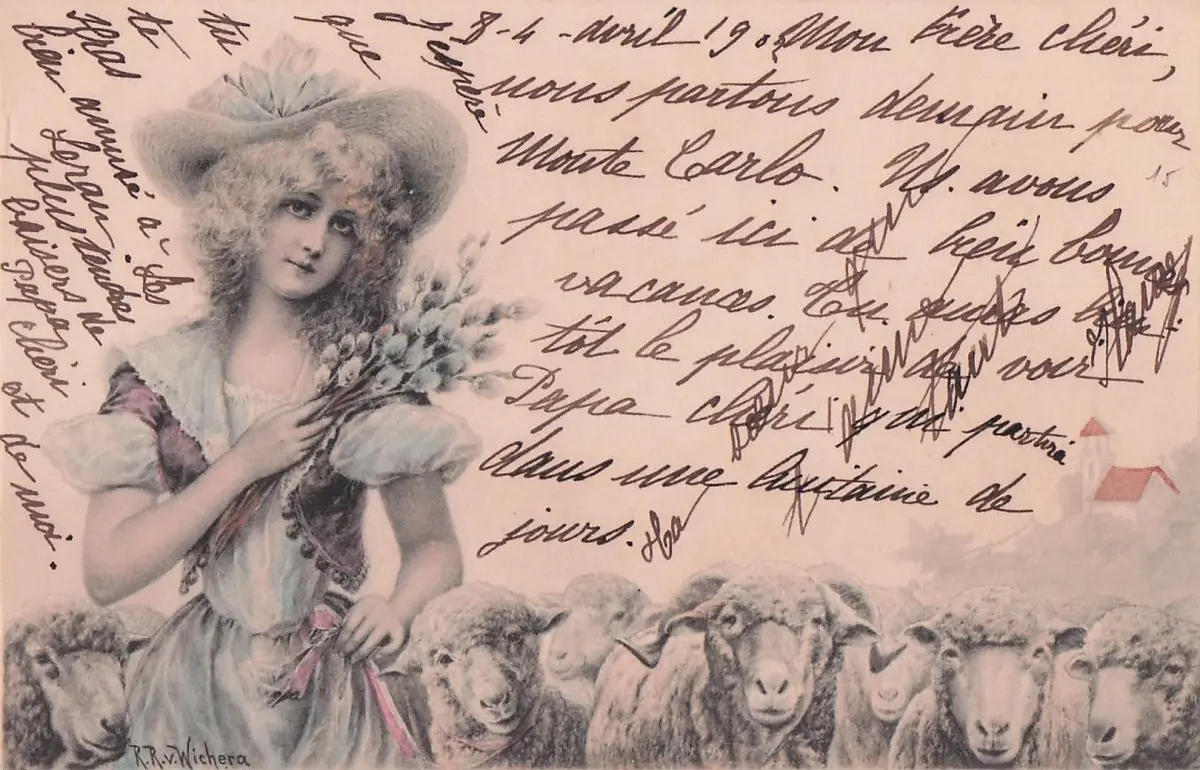 8-4-avril 19. Mon frère chéri,
nous partons demain pour
Monte Carlo. Ns. avons
passé ici de bien bonnes
vacances. Tu auras bien
tôt le plaisir de voir
Papa chéri qui partira
dans une huitaine de
jours.
J'espère
que
tu
te
seras
bien amusé à
plus tendres
baisers de
Papa chéri
et de moi.
R.R.v.Wichera
15